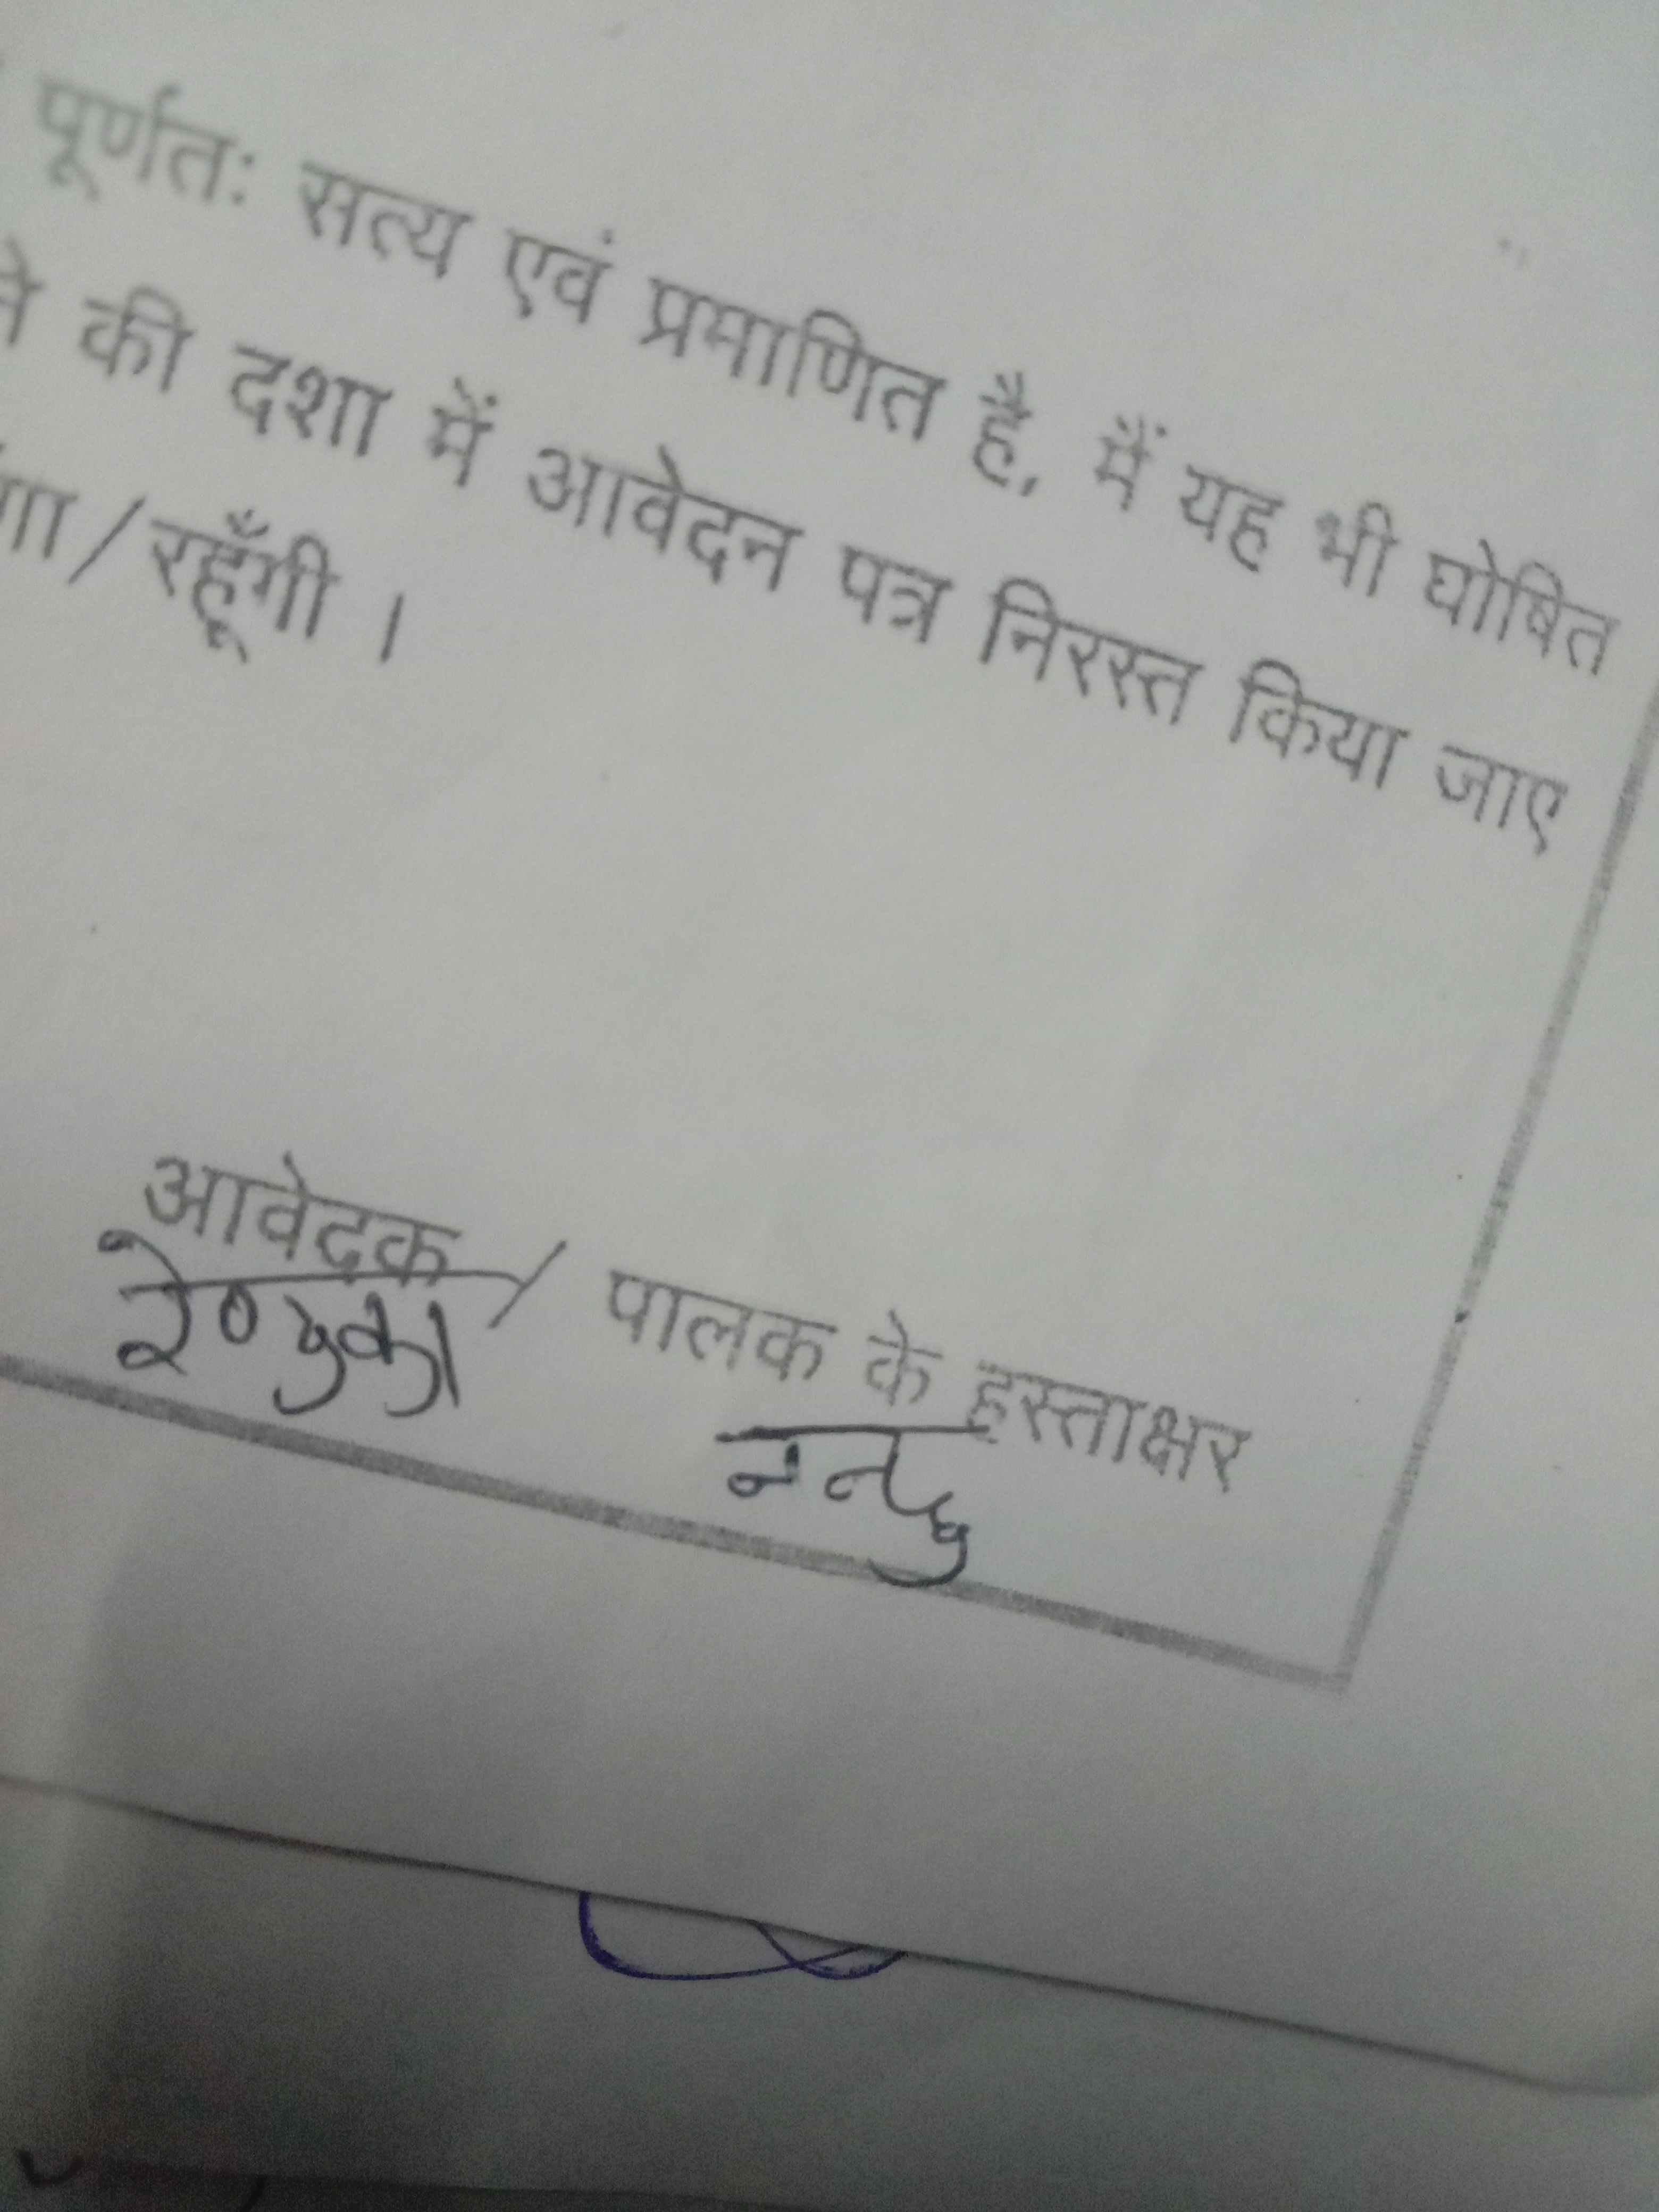 पूर्णतः सत्य एवं प्रमाणित है, मैं यह भी घोषित
ने की दशा में आवेदन पत्र निरस्त किया जाए
गा/रहूँगी ।
आवेदक / पालक के हस्ताक्षर
रेणुका